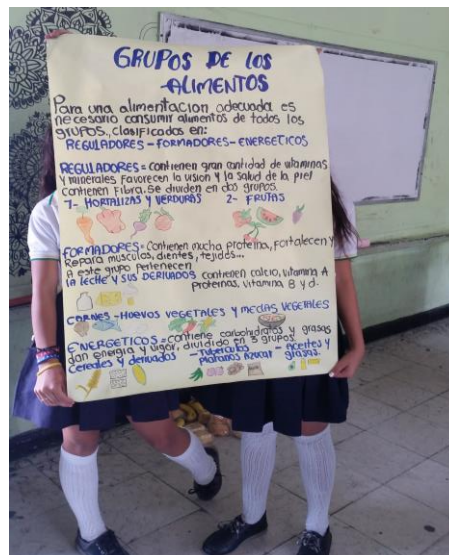 GRUPOS DE LOS
ALIMENTOS
Para una alimentacion adecuada es
necesario consumir alimentos de todos los
grupos, clasificados en:
REGULADORES - FORMADORES - ENERGETICOS
REGULADORES = contienen gran cantidad de vitaminas
y minerales favorecen la vision y la salud de la piel
contienen Fibra. Se dividen en dos grupos.
1- HORTALIZAS Y VERDURAS 2- FRUTAS
FORMADORES = contienen mucha proteina, fortalecen y
Repara musculos, dientes, tejidos...
A este grupo pertenecen
la leche y sus DERIVADOS contienen calcio, vitamina A
Proteinas, vitamina B y d.
CARNES - HUEVOS VEGETALES y MEZCLAS VEGETALES
ENERGETICOS = contiene carbohidratos y grasas
dan energia y vigor, dividido en 3 grupos.
cereales y derivados - Tuberculos - Aceites y
platanos Azucar grasas.